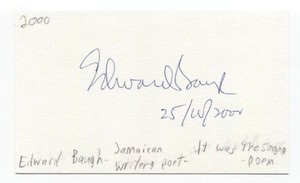 2000
Edward Baugh
25/10/2000
Edward Baugh - Jamaican writer + poet - It was the
- poem